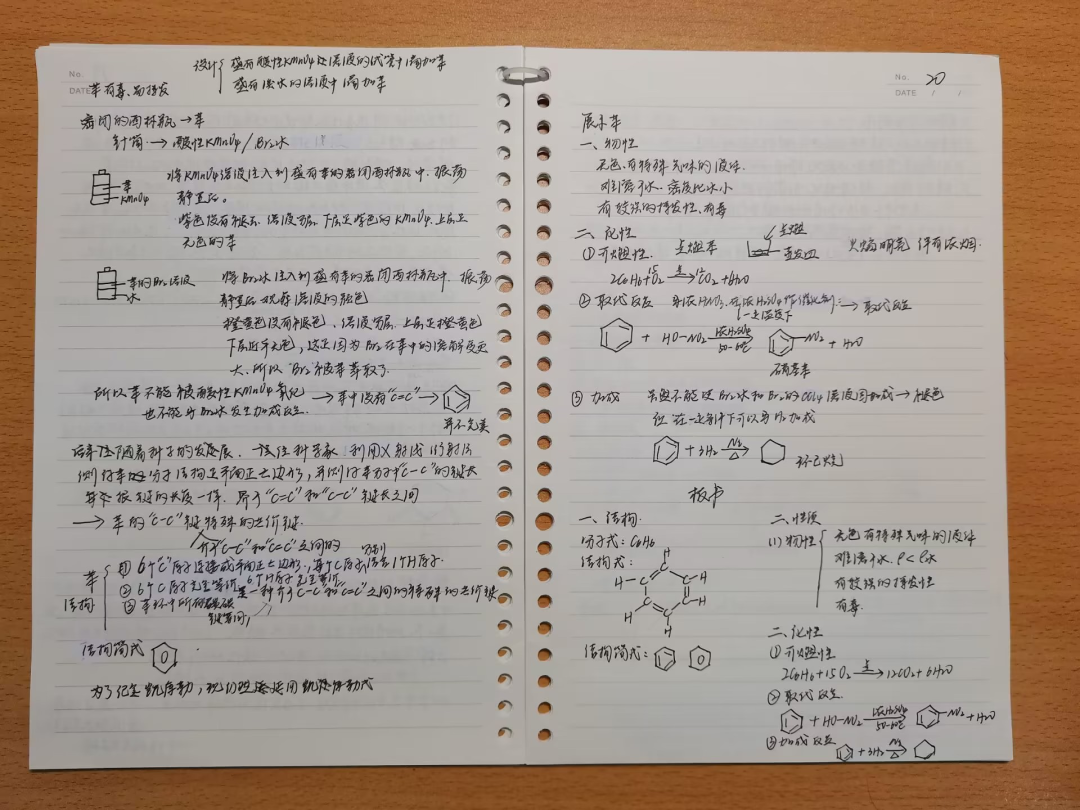 No.
DATE
设计 盛有酸性KMnO4溶液的试管中滴加苯
盛有溴水的溶液中滴加苯
苯有毒、易挥发
密闭的西林瓶 → 苯
针筒 → 酸性KMnO4/Br2水
苯
KMnO4
将KMnO4溶液注入到盛有苯的密闭西林瓶中. 振荡
静置后。
紫色没有褪去. 溶液分层 下层是紫色的KMnO4. 上层是
无色的苯
苯的Br2溶液
水
将Br2水注入到盛有苯的密闭西林瓶中. 振荡
静置后 观察溶液的颜色
橙黄色没有褪色、溶液分层. 上层是橙黄色
下层近乎无色, 这是因为Br2在苯中的溶解度更
大. 所以 Br2被苯萃取了.
所以苯不能被酸性KMnO4氧化 → 苯中没有“C=C” →
也不能与Br2水发生加成反应. 并不完美
话题 随着科学的发展. 一位位科学家 利用X射线
测得苯分子结构是平面正六边形, 并测得苯分子“C-C”的键长
每个 键的长度一样. 界于“C=C”和“C-C”键长之间
→ 苯的“C-C”键特殊的共价键.
介于“C-C”和“C=C”之间的
苯
结构
① 6个C原子连接成平面正六边形, 每个C原子分别结合1个H原子.
② 6个C原子完全等价 6个H原子完全等价
③ 苯环中所有碳碳键等同, 是一种介于C-C和C=C之间的特殊的共价键
结构简式
为了纪念凯库勒, 我们现在使用凯库勒式
No. 20
DATE / /
展示苯
一、物性
无色.有特殊气味的液体.
难溶于水. 密度比水小
有较强的挥发性、有毒
二、化性
①可燃性. 点燃苯 点燃 蒸发皿 火焰明亮 伴有浓烟.
2C6H6+15O2 →点燃 12CO2+6H2O
② 取代反应 和浓HNO3.在浓H2SO4作催化剂 → 取代反应
一定温度下
+ HO-NO2 →浓H2SO4 50-60℃ NO2 + H2O
硝基苯
③ 加成 虽然不能使Br2水和Br2的CCl4溶液因加成→褪色
但 在一定条件下可以与H2加成
+ 3H2 →Ni △ 环己烷
板书
一、结构.
分子式: C6H6
结构式:
H
H H
H H
H
结构简式:
二、性质
(1) 物性
无色有特殊气味的液体
难溶于水. ρ<ρ水
有较强的挥发性
有毒.
二、化性
① 可燃性
2C6H6+15O2 →点燃 12CO2+6H2O
② 取代反应.
+ HO-NO2 →浓H2SO4 50-60℃ NO2+H2O
③加成反应 + 3H2 →Ni △